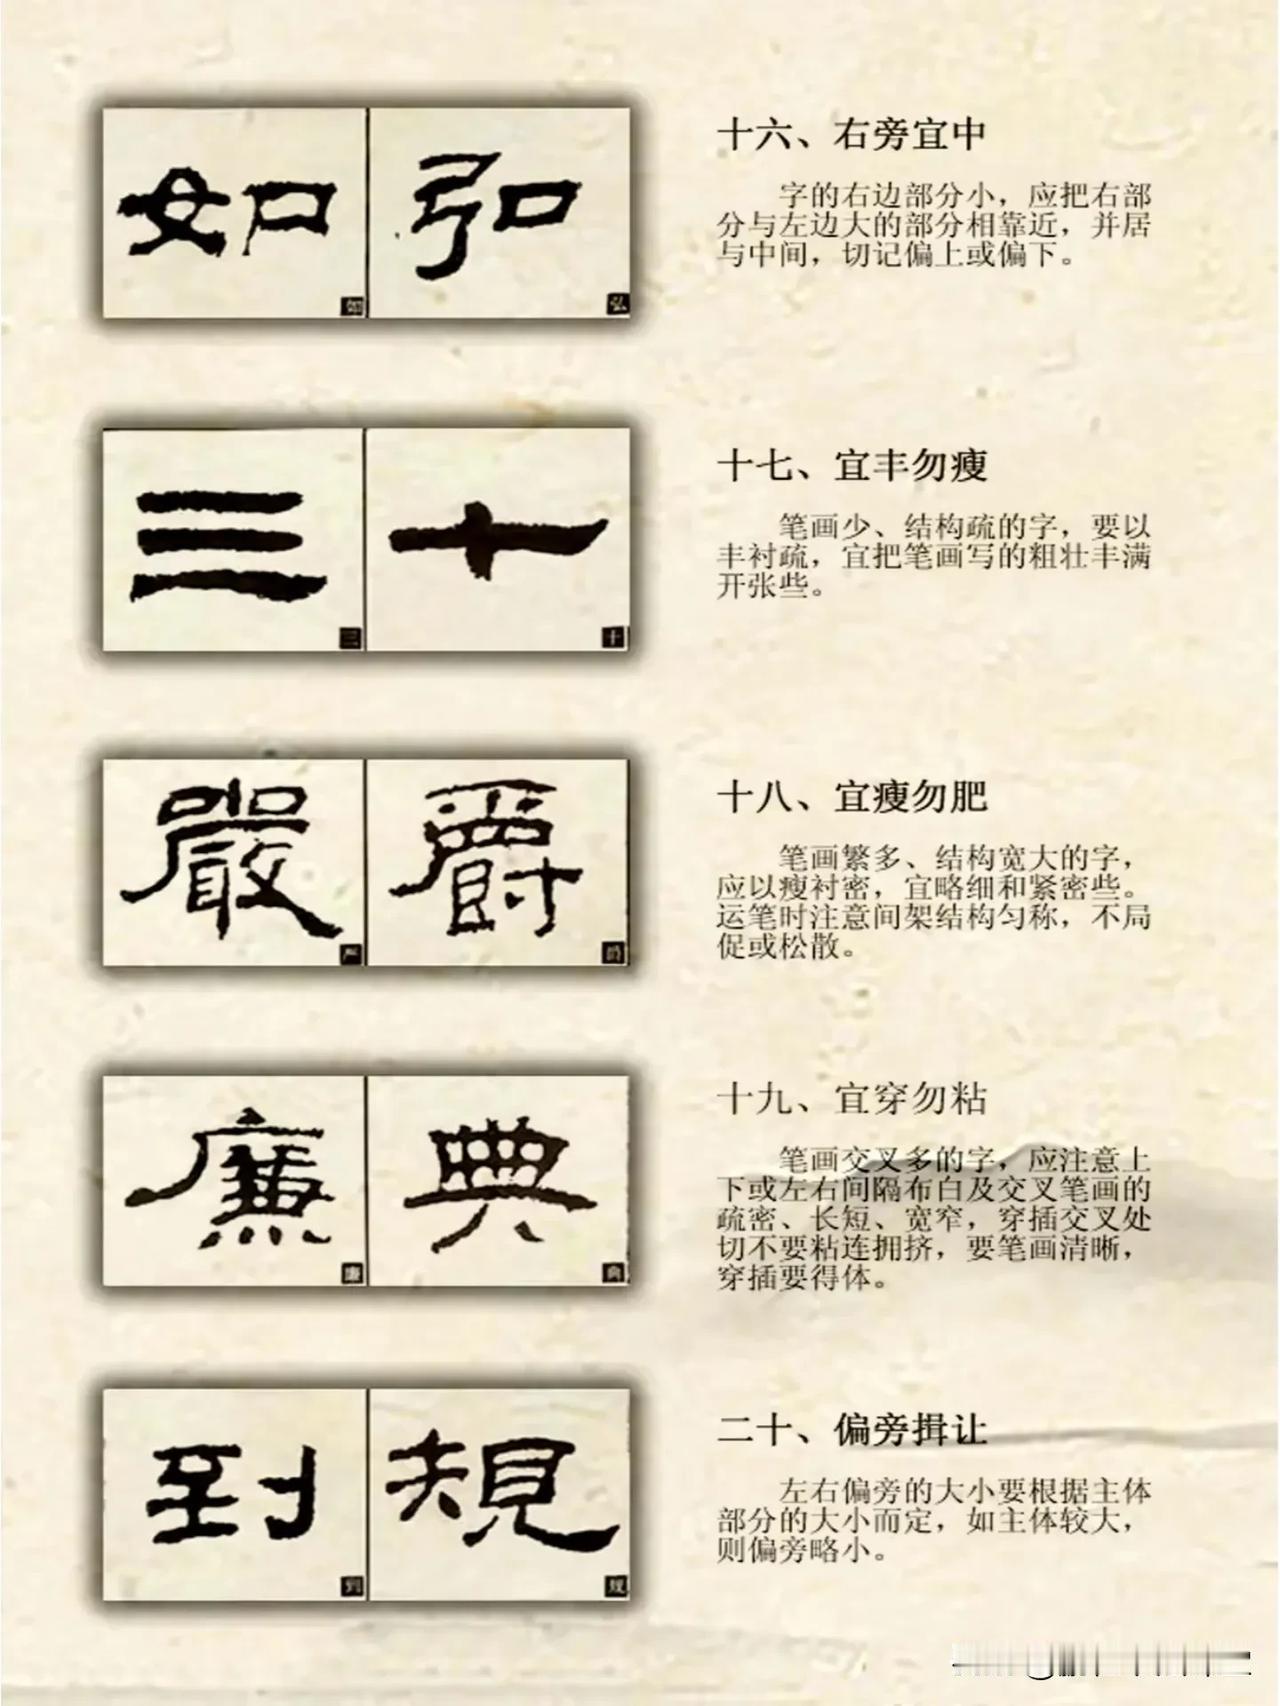 如 弘
如 弘
十六、右旁宜中
字的右边部分小，应把右部
分与左边大的部分相靠近，并居
与中间，切记偏上或偏下。
三 十
三 十
十七、宜丰勿瘦
笔画少、结构疏的字，要以
丰衬疏，宜把笔画写的粗壮丰满
开张些。
嚴 爵
严 爵
十八、宜瘦勿肥
笔画繁多、结构宽大的字，
应以瘦衬密，宜略细和紧密些。
运笔时注意间架结构匀称，不局
促或松散。
廉 典
廉 典
十九、宜穿勿粘
笔画交叉多的字，应注意上
下或左右间隔布白及交叉笔画的
疏密、长短、宽窄，穿插交叉处
切不要粘连拥挤，要笔画清晰，
穿插要得体。
到 規
到 规
二十、偏旁揖让
左右偏旁的大小要根据主体
部分的大小而定，如主体较大，
则偏旁略小。